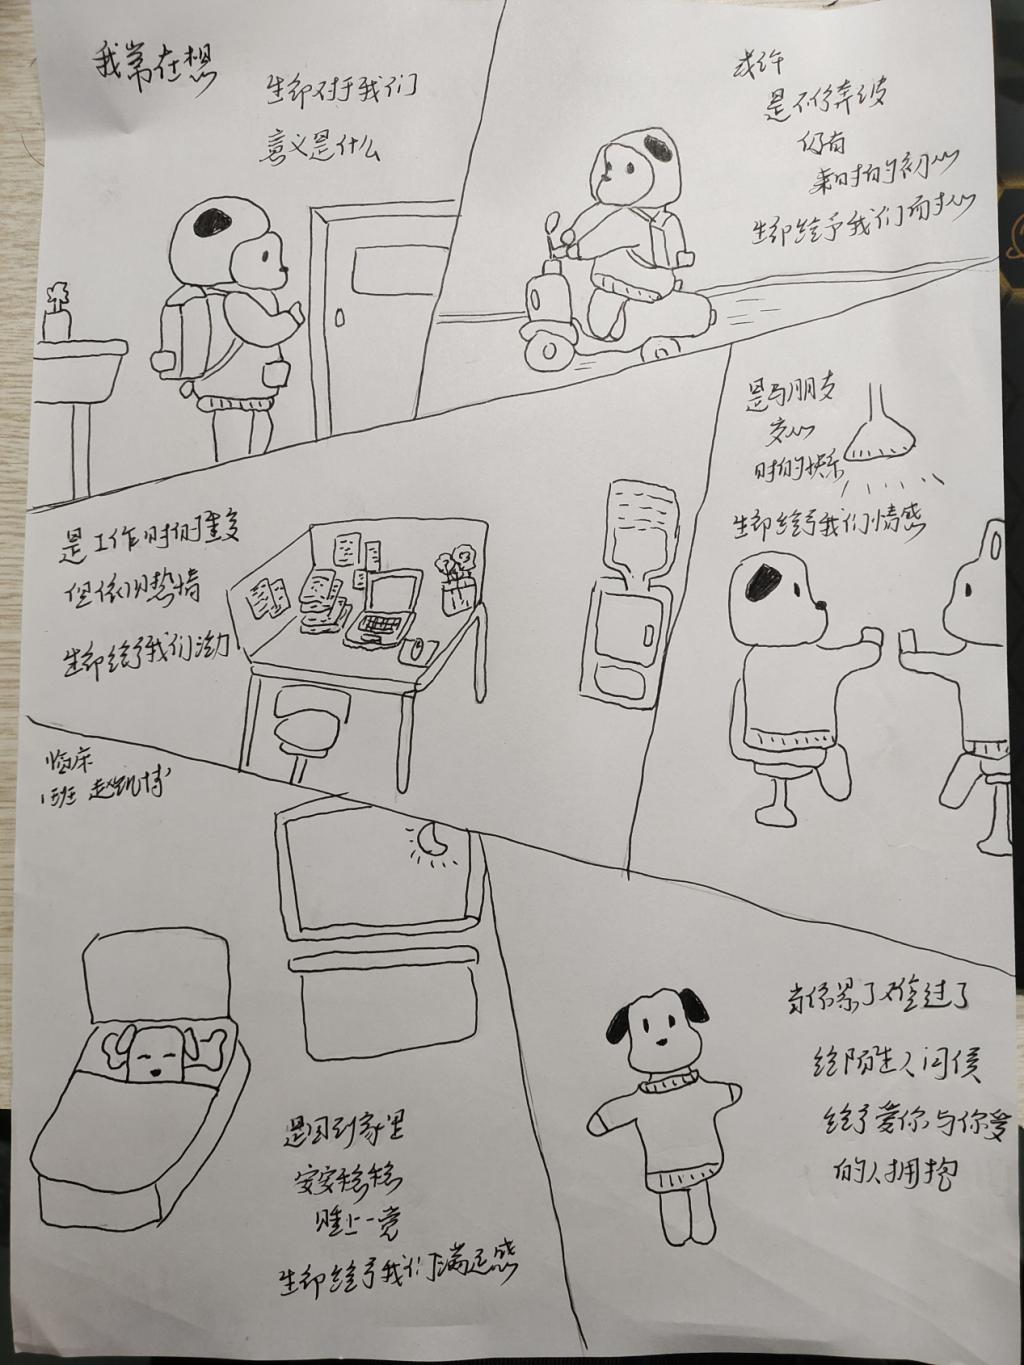 我常在想
生命对于我们
意义是什么
或许
是不停奔波
仍有
来时的初心
生命给予我们耐心
是工作时的重复
但依旧热情
生命给予我们活力
是与朋友
谈心
时的快乐
生命给予我们情感
临床
1班 赵凯博
是回到家里
安安稳稳
睡上一觉
生命给予我们满足感
当你累了难过了
给陌生人问候
给予爱你与你爱
的人拥抱